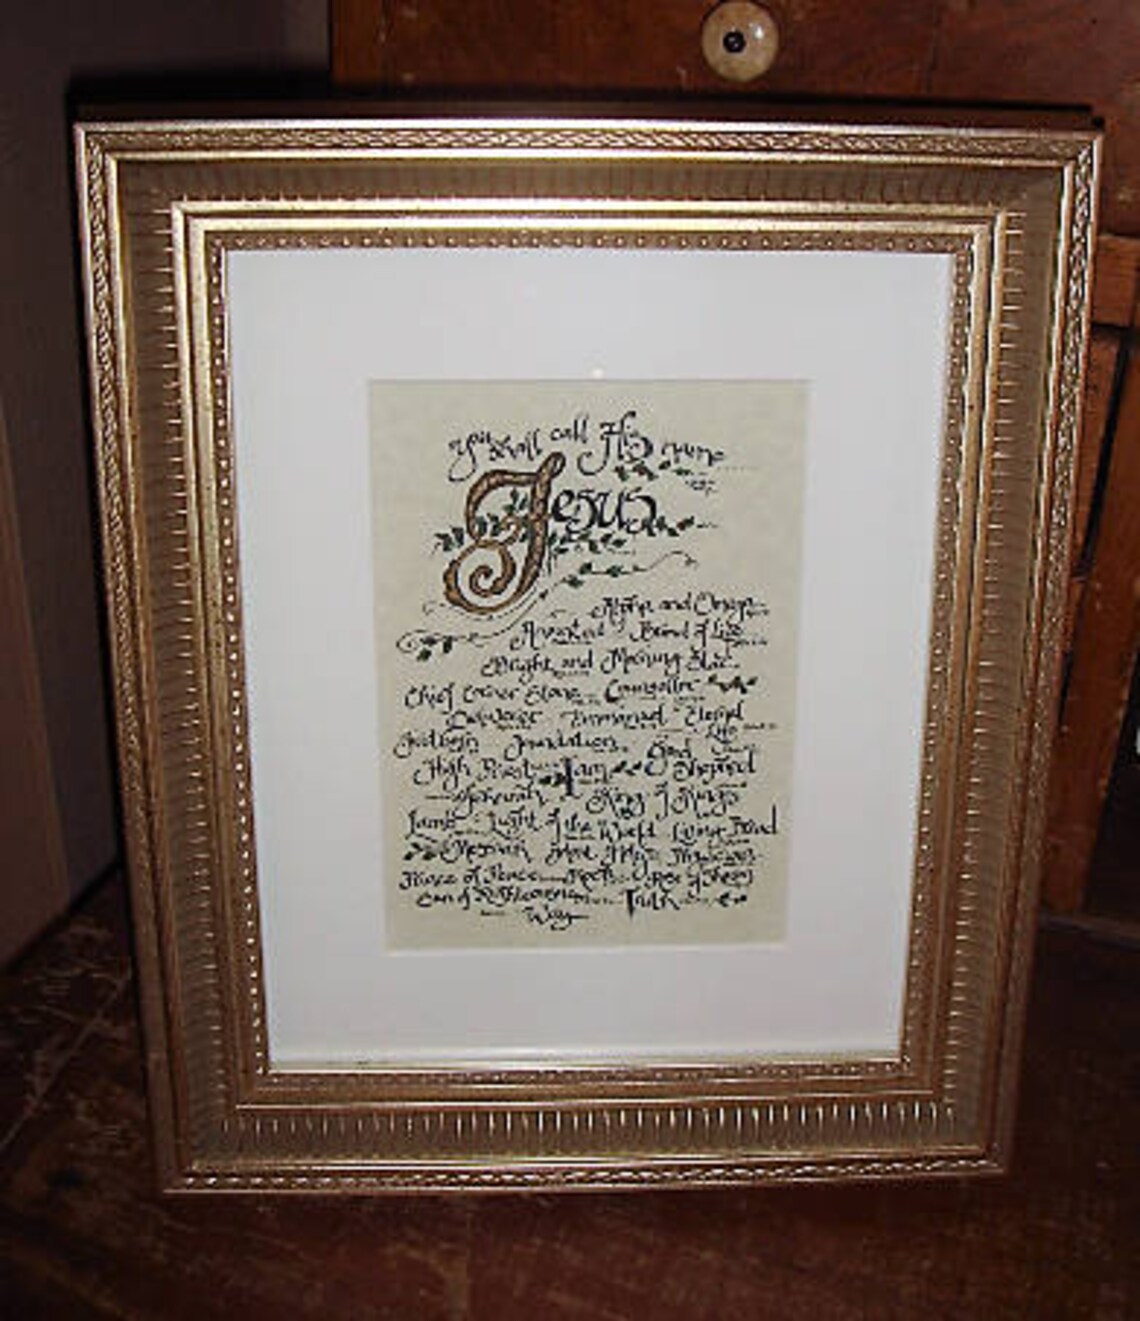 You shall call His name
Jesus
Alpha and Omega
Anointed Bread of Life
Bright and Morning Star
Chief Corner Stone Counsellor
Deliverer Emmanuel Eternal
Life
Foundation Good
High Priest I am Shepherd
Jehovah King of Kings
Lamb Light of the World Living Bread
Messiah Most High Physician
Prince of Peace Rock Rose of Sharon
Sun of Righteousness Truth
Way